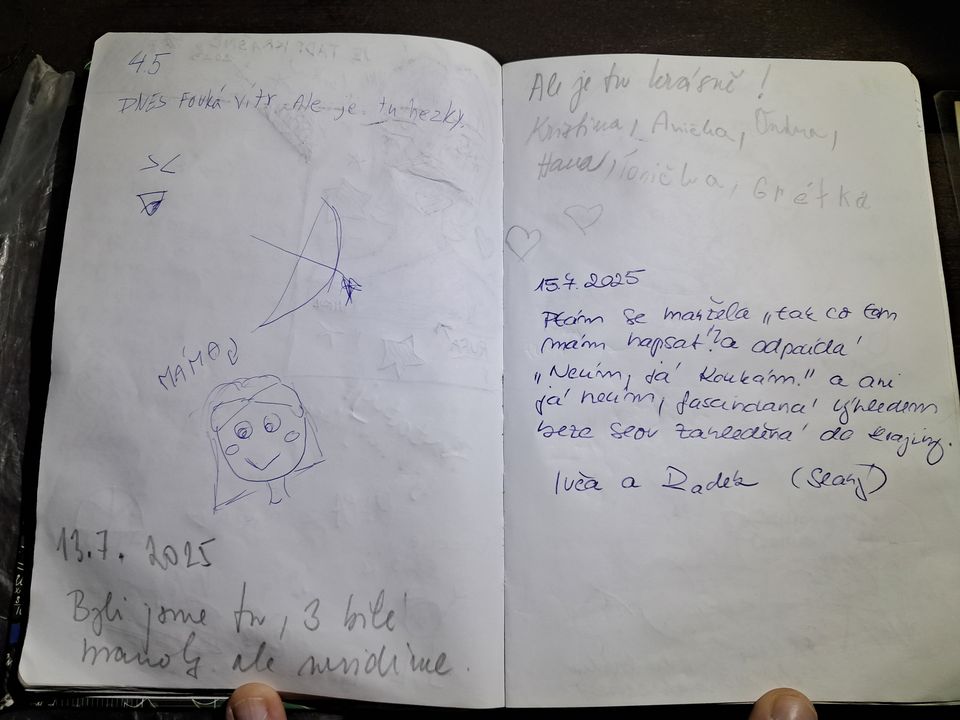 4.5
DNES Fouká vítr. Ale je tu hezky.
MÁMA
13.7. 2025
Byli jsme tu, 3 bílé
ale nevidíme.
Ale je tu krásně!
Kristina, Anička, Ondra,
Hana, Tonička, Grétka
15.7.2025
Ptám se manžela „tak co tam
mám napsat?" a odpovídá
„Nevím, já koukám." a ani
já nevím, fascindaná výhledem
beze slov zahleděná do krajiny.
Ivča a Radek